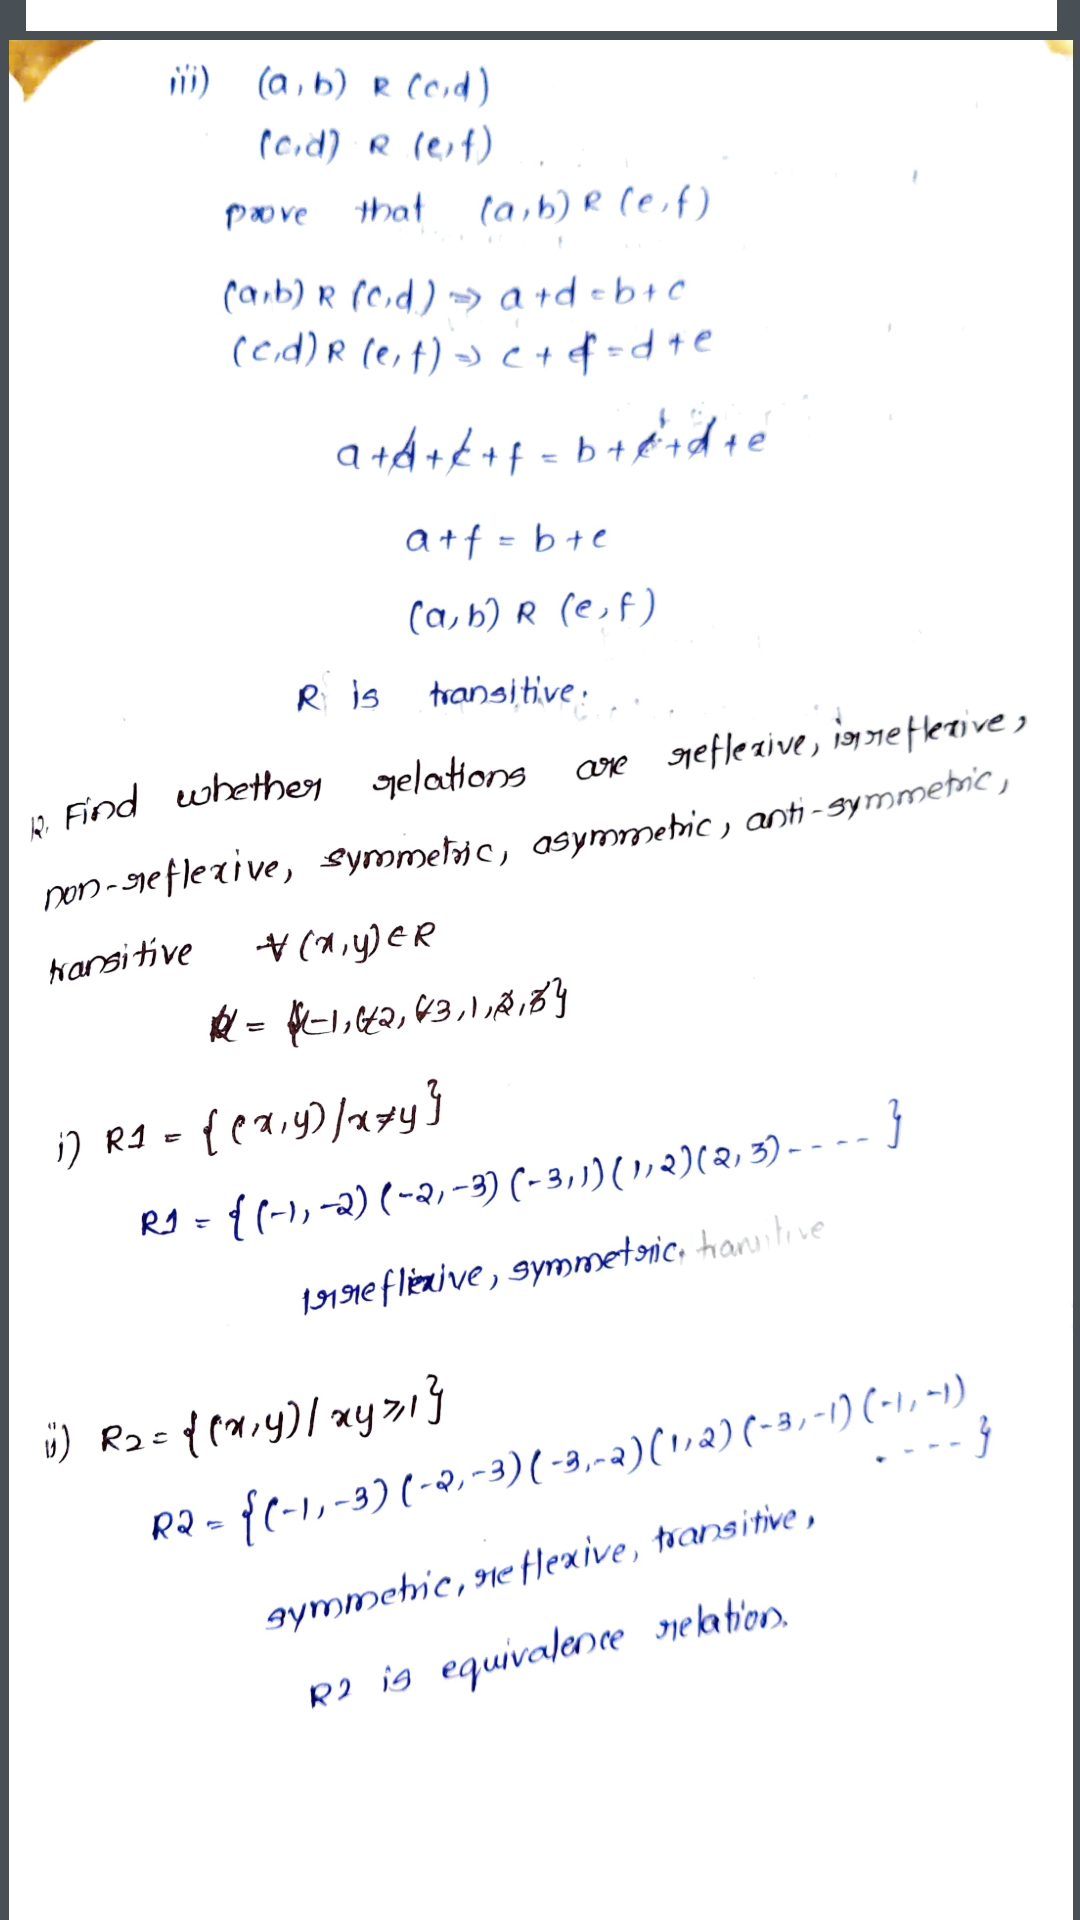 iii) (a,b) R (c,d)
(c,d) R (e,f)
prove that (a,b) R (e,f)
(a,b) R (c,d) ⇒ a+d=b+c
(c,d) R (e,f) ⇒ c+f=d+e
a+d+c+f = b+c+d+e
a+f = b+e
(a,b) R (e,f)
R is transitive.
12. Find whether relations are reflexive, irreflexive,
non-reflexive, symmetric, asymmetric, anti-symmetric,
transitive ∀ (x,y) ∈ R
= {-1,-2,-3,1,2,3}
i) R1 = {(x,y)/x≠y}
R1 = {(-1,-2) (-2,-3) (-3,1) (1,2) (2,3) - - - - }
Irreflexive, symmetric. transitive
ii) R2 = {(x,y)/ xy≥1}
R2 = {(-1,-3) (-2,-3) (-3,-2) (1,2) (-3,-1) (-1,-1)
. - - - - }
symmetric, reflexive, transitive,
R2 is equivalence relation.